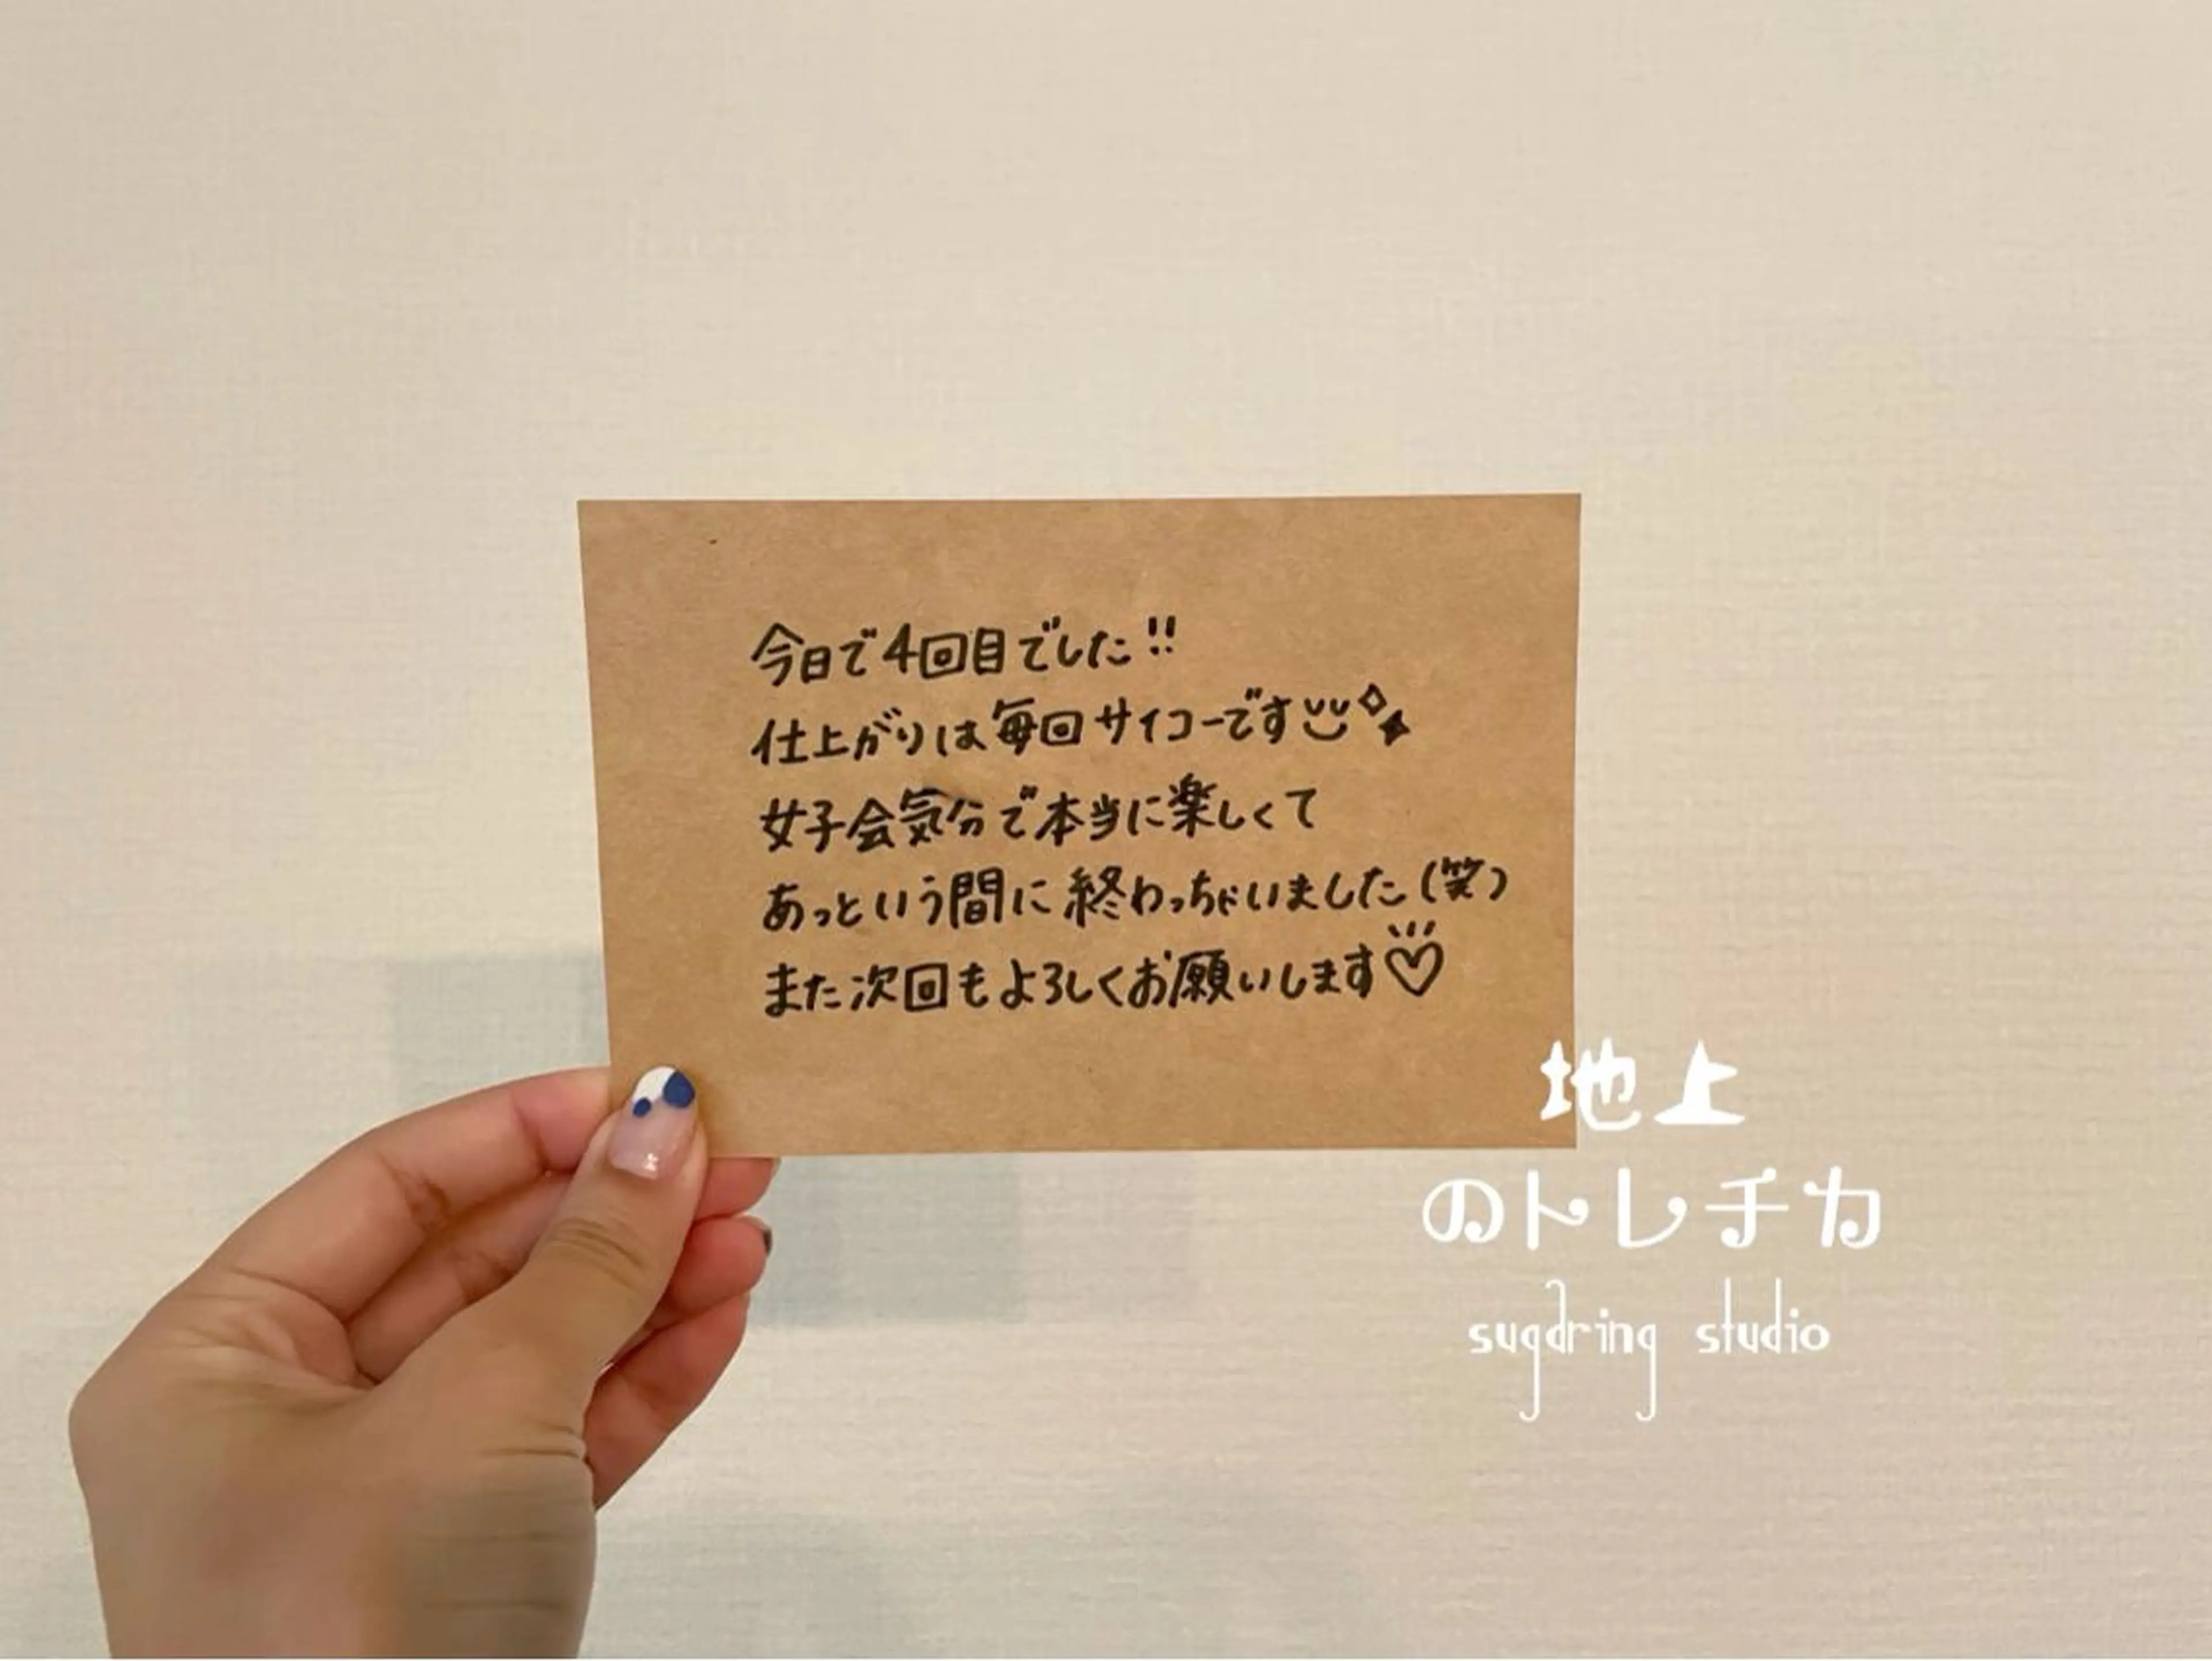 今日で4回目でした!!
仕上がりは毎回サイコーです
女子会気分で本当に楽しくて
あっという間に終わっちゃいました(笑)
また次回もよろしくお願いします♡
地上
のトレチカ
sugaring studio